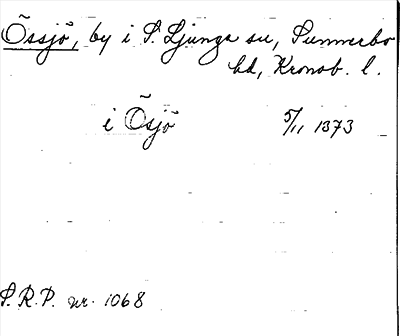 Össjö, by i S. Ljunga sn, Sunnerbo
hd, Kronob. l.
i Ösjö 5/11 1373
S.R.P. nr. 1068